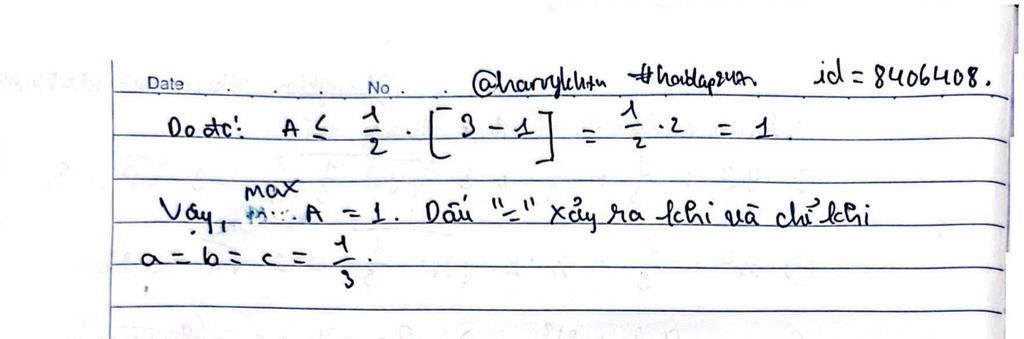 Date No. @harrykhxn #hoidap247 id = 8406408.
Do đó: A ≤ 1/2 · [3 - 1] = 1/2 · 2 = 1.
Vậy, max A = 1. Dấu "=" xảy ra khi và chỉ khi
a = b = c = 1/3.